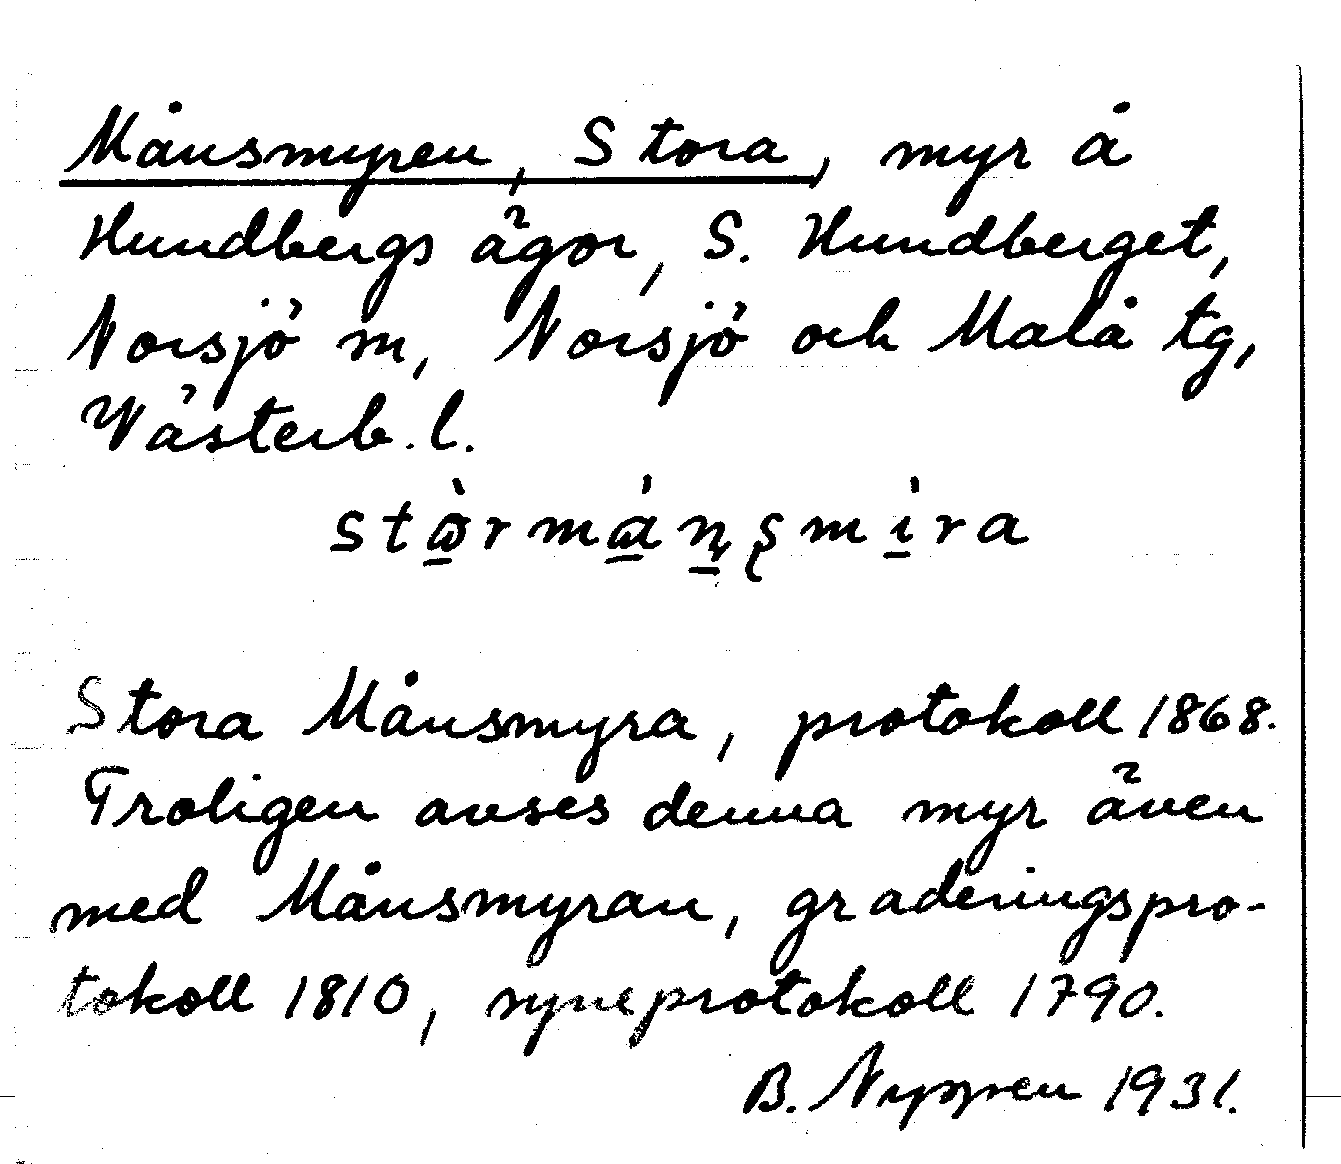 Månsmyren, Stora, myr å
Hundbergs ägor, S. Hundberget,
Norsjö m, Norsjö och Malå tg,
Västerb. l.
Stora Månsmyra, protokoll 1868.
Troligen avses denna myr även
med Månsmyran, graderingspro-
tokoll 1810, syneprotokoll 1790.
B. 1931.